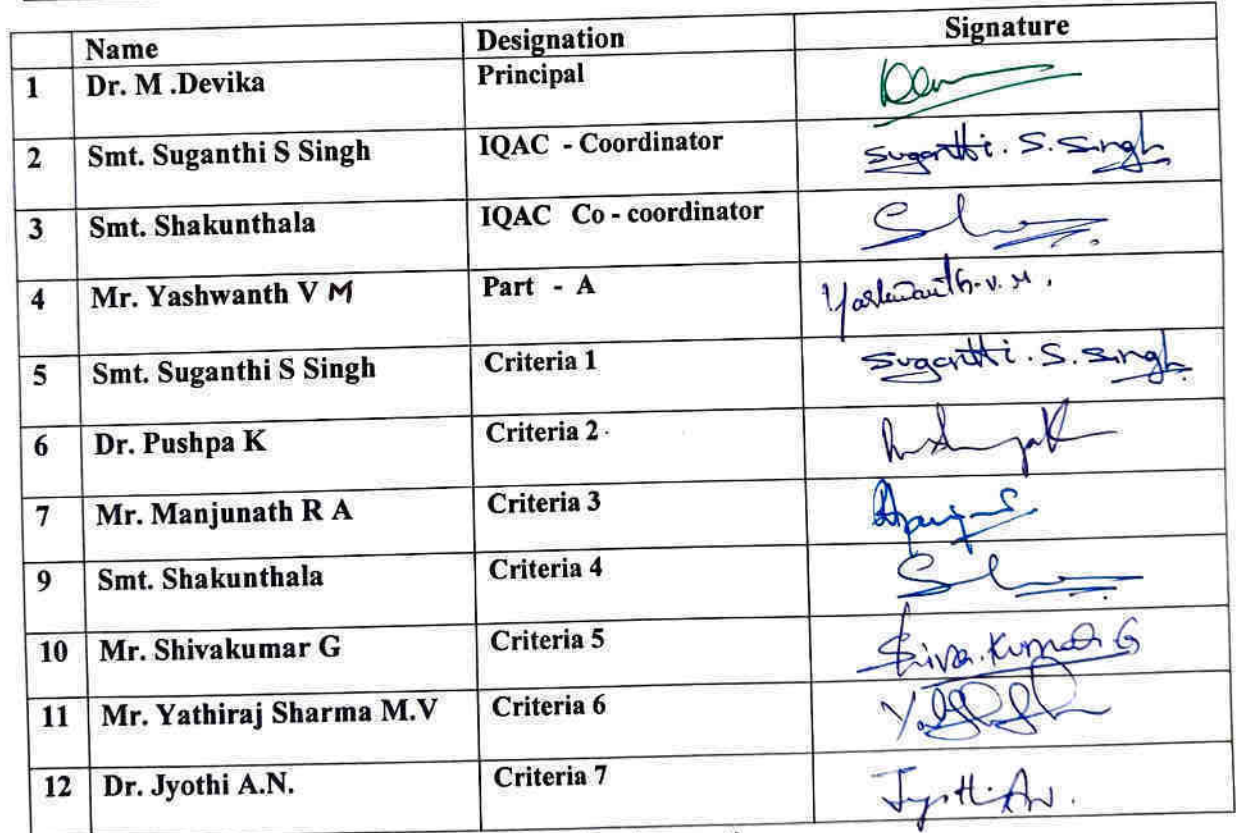 Name Designation Signature
1 Dr. M .Devika Principal
2 Smt. Suganthi S Singh IQAC - Coordinator Suganthi. S. Singh
3 Smt. Shakunthala IQAC Co - coordinator
4 Mr. Yashwanth V M Part - A Yashwanth. V. M.
5 Smt. Suganthi S Singh Criteria 1 Suganthi. S. Singh
6 Dr. Pushpa K Criteria 2
7 Mr. Manjunath R A Criteria 3
9 Smt. Shakunthala Criteria 4
10 Mr. Shivakumar G Criteria 5 Shiva. Kumar G
11 Mr. Yathiraj Sharma M.V Criteria 6
12 Dr. Jyothi A.N. Criteria 7 Jyothi AN.